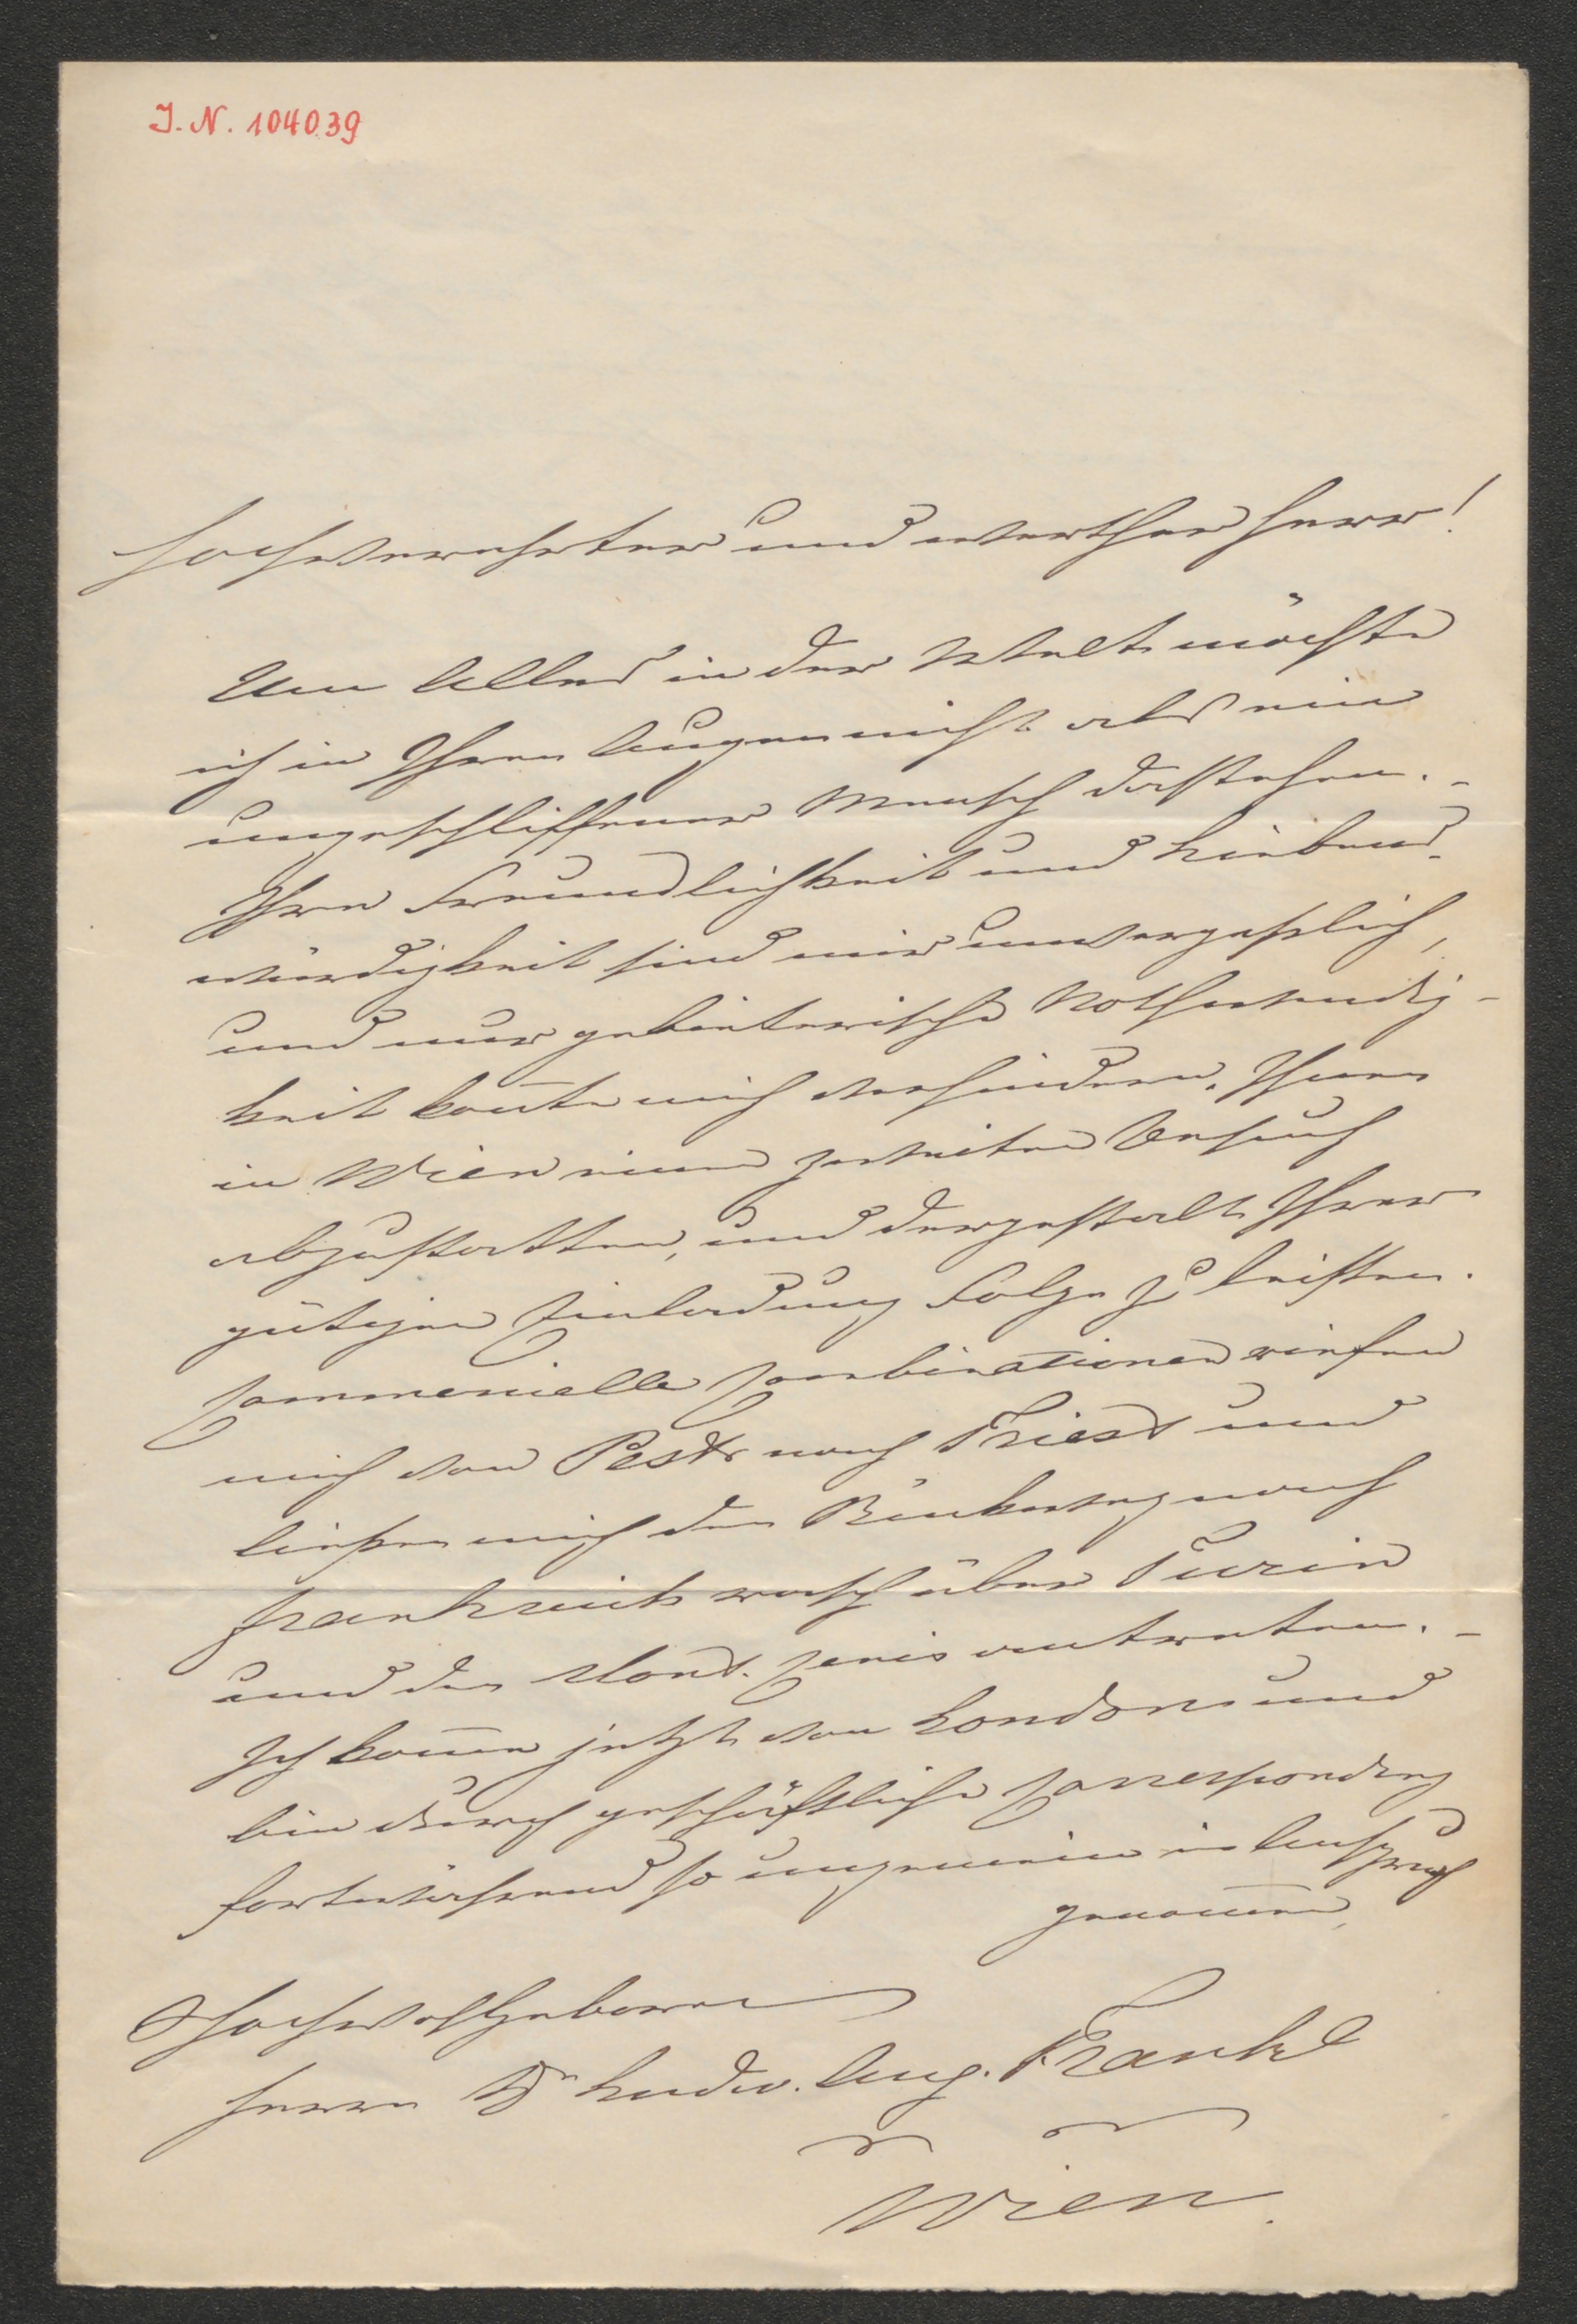 J. N. 104039
Hochverehrter und werther Herr!
Um Alles in der Welt möchte
ich in Ihren Augen nicht als ein
ungeschliffener Mensch dastehen. -
Ihre Freundlichkeit und Liebens-
würdigkeit sind mir unvergeßlich,
und nur gebieterische Nothwendig-
keit koñte mich verhindern, Ihnen
in Wien einen zweiten Besuch
abzustatten, und dergestalt Ihrer
gütigen Einladung Folge zu leisten.
Commercielle Combinationen riefen
mich von Pest nach Triest und
ließen mich den Rückweg nach
Frankreich rasch über Turin
und den Mont-Cenis antreten. -
Ich kom̄e jetzt von London und
bin durch geschäftliche Correspondenz
fortwährend so ungemein in Anspruch
genom̄en,
Hochwohlgeboren
Herrn Dr Ludw. Aug. Frankl
Wien.